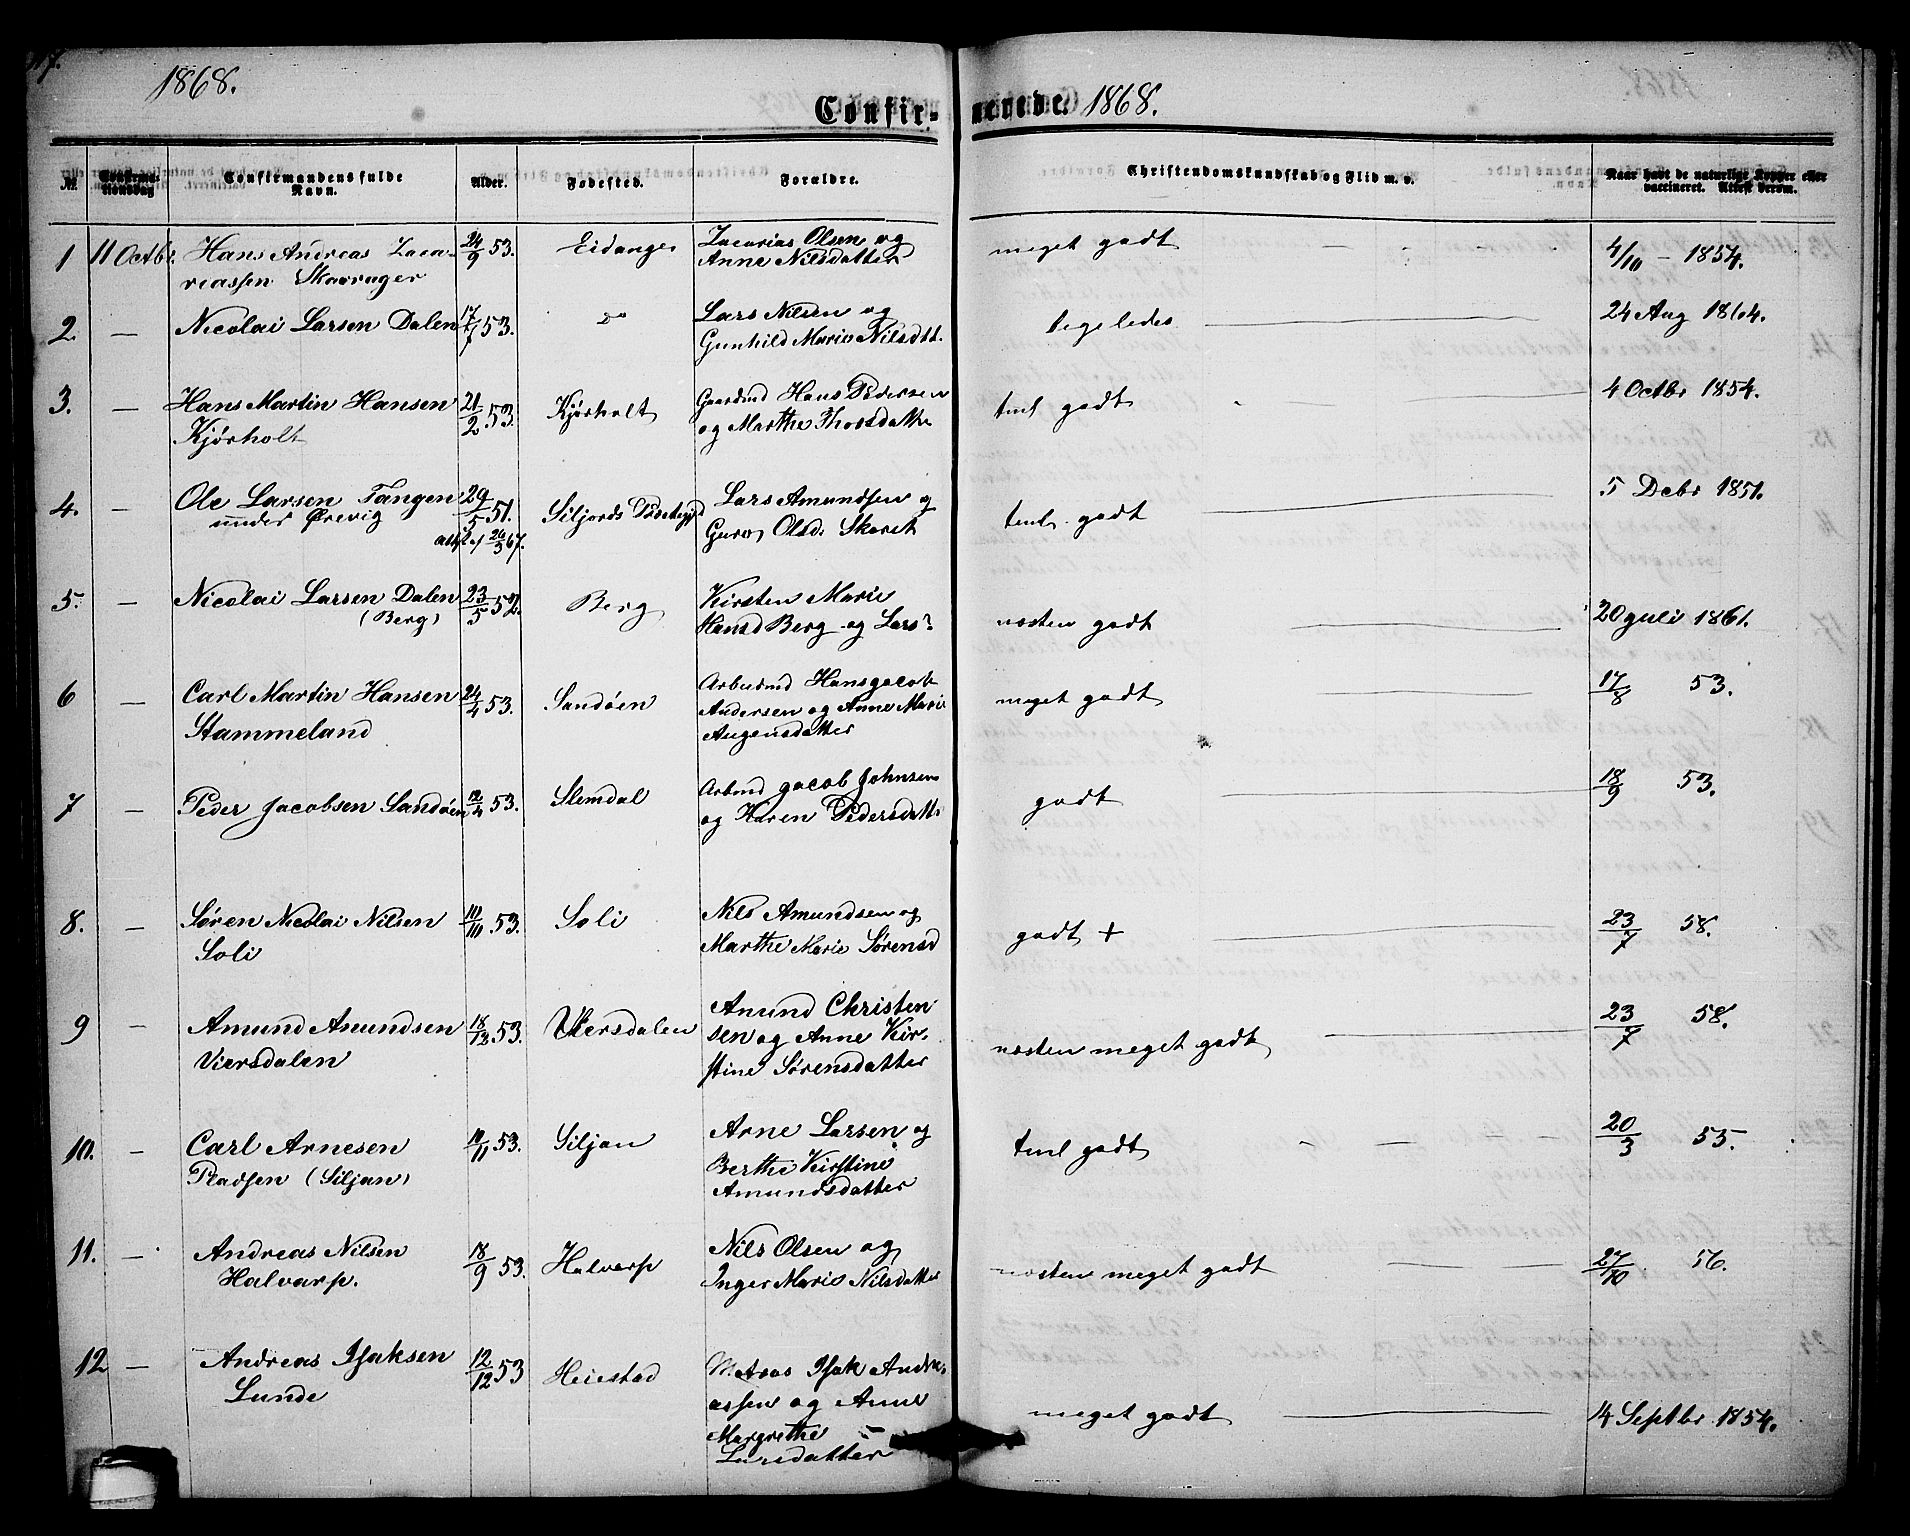 1868.
Confirmerede. 1868.
№ Confirmationsdag Confirmandens fulde Navn. Alder. Fødested. Forældre. Christendomskundskab og Flid m. v. Naar havt de naturlige Kopper eller vaccineret. Attest derom.
1 11 Octbr. Hans Andreas Zaca- 24/9 53. Eidanger Zacarias Olsen og meget godt 4/10 - 1854.
riassen Skavrager Anne Nilsdatter
2. — Nicolai Larsen Dalen 17/7 53. do Lars Nilsen og ligeledes 24 Aug 1864.
Gunhild Marie Nilsdtt.
3. — Hans Martin Hansen 21/2 53. Kjørholt Gaardmd Hans Pedersen teml godt 4 Octbr 1854.
Kjørholt og Marthe Thorsdatter
4. — Ole Larsen Tangen 29/5 51. Siljords Lars Amundsen og teml. godt 5 Debr 1851.
under Ørevig Guro Olsd. Skaret
26/3 67.
5. — Nicolai Larsen Dalen 23/5 52. Berg Kirsten Marie næsten godt 20 Juli 1861.
(Berg) Hansd Berg og Lars
6 — Carl Martin Hansen 24/4 53. Sandøen Arbeidmd Hans Jacob meget godt 17/8 53.
Stammeland Andersen og Anne Marie
Augensdatter
7 — Peder Jacobsen Sandøen 12/4 53. Slemdal Arbmd Jacob Johnsen godt 18/9 53.
og Karen Pedersdatt.
8. — Søren Nicolai Nilsen 10/11 53. Soli Nils Amundsen og godt + 23/7 58.
Soli Marthe Marie Sørensd
9 — Amund Amundsen 18/12 53. Viersdalen Amund Christen næsten meget godt 23/7 58.
Viersdalen sen og Anne Kir-
stine Sørensdatter
10. — Carl Arnesen 11/11 53. Siljan Arne Larsen og teml godt 20/3 55.
Pladsen (Siljan) Berthe Kirstine
Amundsdatter
11. — Andreas Nilsen 18/9 53. Halvarp Nils Olsen og næsten meget godt 27/10 56.
Halvarp. Inger Marie Nilsdatter
12 — Andreas Isaksen 12/12 53 Heiestad Matros Isak Andre- meget godt 14 Septbr 1854.
Lunde assen og Anne
Margrethe
Larsdatter